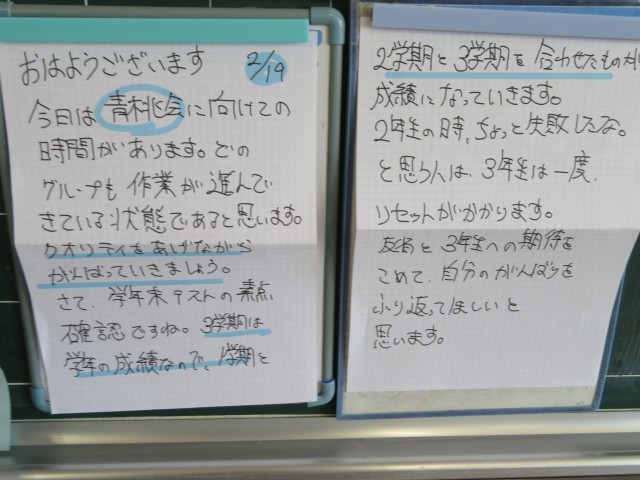 おはようございます 2/19
今日は青桃会に向けての
時間があります。どの
グループも作業が進んで
きている状態であると思います。
クオリティをあげながら
がんばっていきましょう。
さて、学年末テストの素点
確認ですね。3学期は
学年の成績なので、1学期と
2学期と3学期を合わせたものが
成績になっていきます。
2年生の時、ちょっと失敗したな。
と思う人は、3年生は一度、
リセットがかかります。
反省と3年生への期待を
こめて、自分のがんばりを
ふり返ってほしいと
思います。